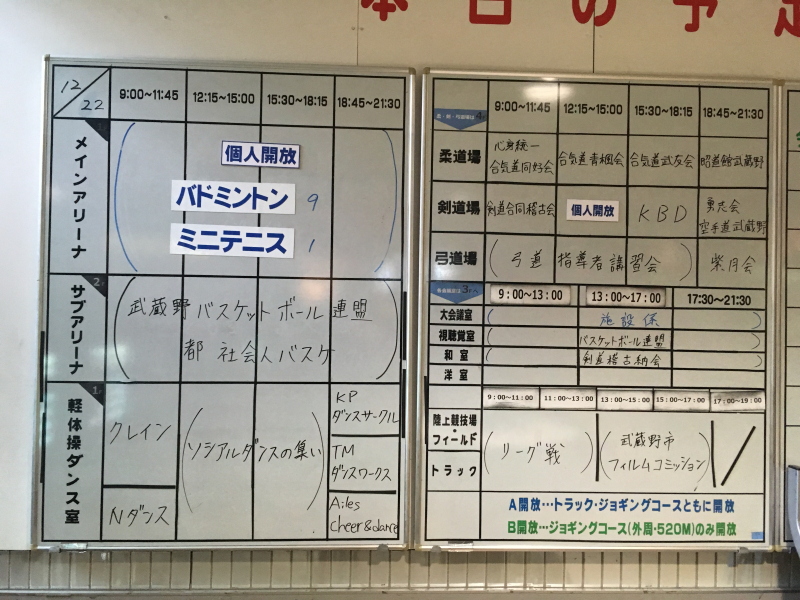 本日の予定
12/22
9:00~11:45
12:15~15:00
15:30~18:15
18:45~21:30
メインアリーナ
個人開放
バドミントン 9
ミニテニス 1
サブアリーナ
武蔵野バスケットボール連盟
都 社会人バスケ
軽体操ダンス室
クレイン
Nダンス
ソシアルダンスの集い
KP
ダンスサークル
TM
ダンスワークス
Ailes
Cheer&dance
9:00~11:45
12:15~15:00
15:30~18:15
18:45~21:30
柔道場
心身統一
合気道同好会
合気道青梱会
合気道武友会
昭道館武蔵野
剣道場
剣道合同稽古会
個人開放
KBD
勇志会
空手道武蔵野
弓道場
(弓道 指導者講習会)
紫月会
9:00~13:00
13:00~17:00
17:30~21:30
大会議室
施設係
視聴覚室
バスケットボール連盟
和室
剣道稽古納会
洋室
9:00~11:00
11:00~13:00
13:00~15:00
15:00~17:00
17:00~19:00
陸上競技場
・フィールド
トラック
(リーグ戦)
(武蔵野市
フィルムコミッション)
A開放…トラック・ジョギングコースともに開放
B開放…ジョギングコース(外周・520M)のみ開放